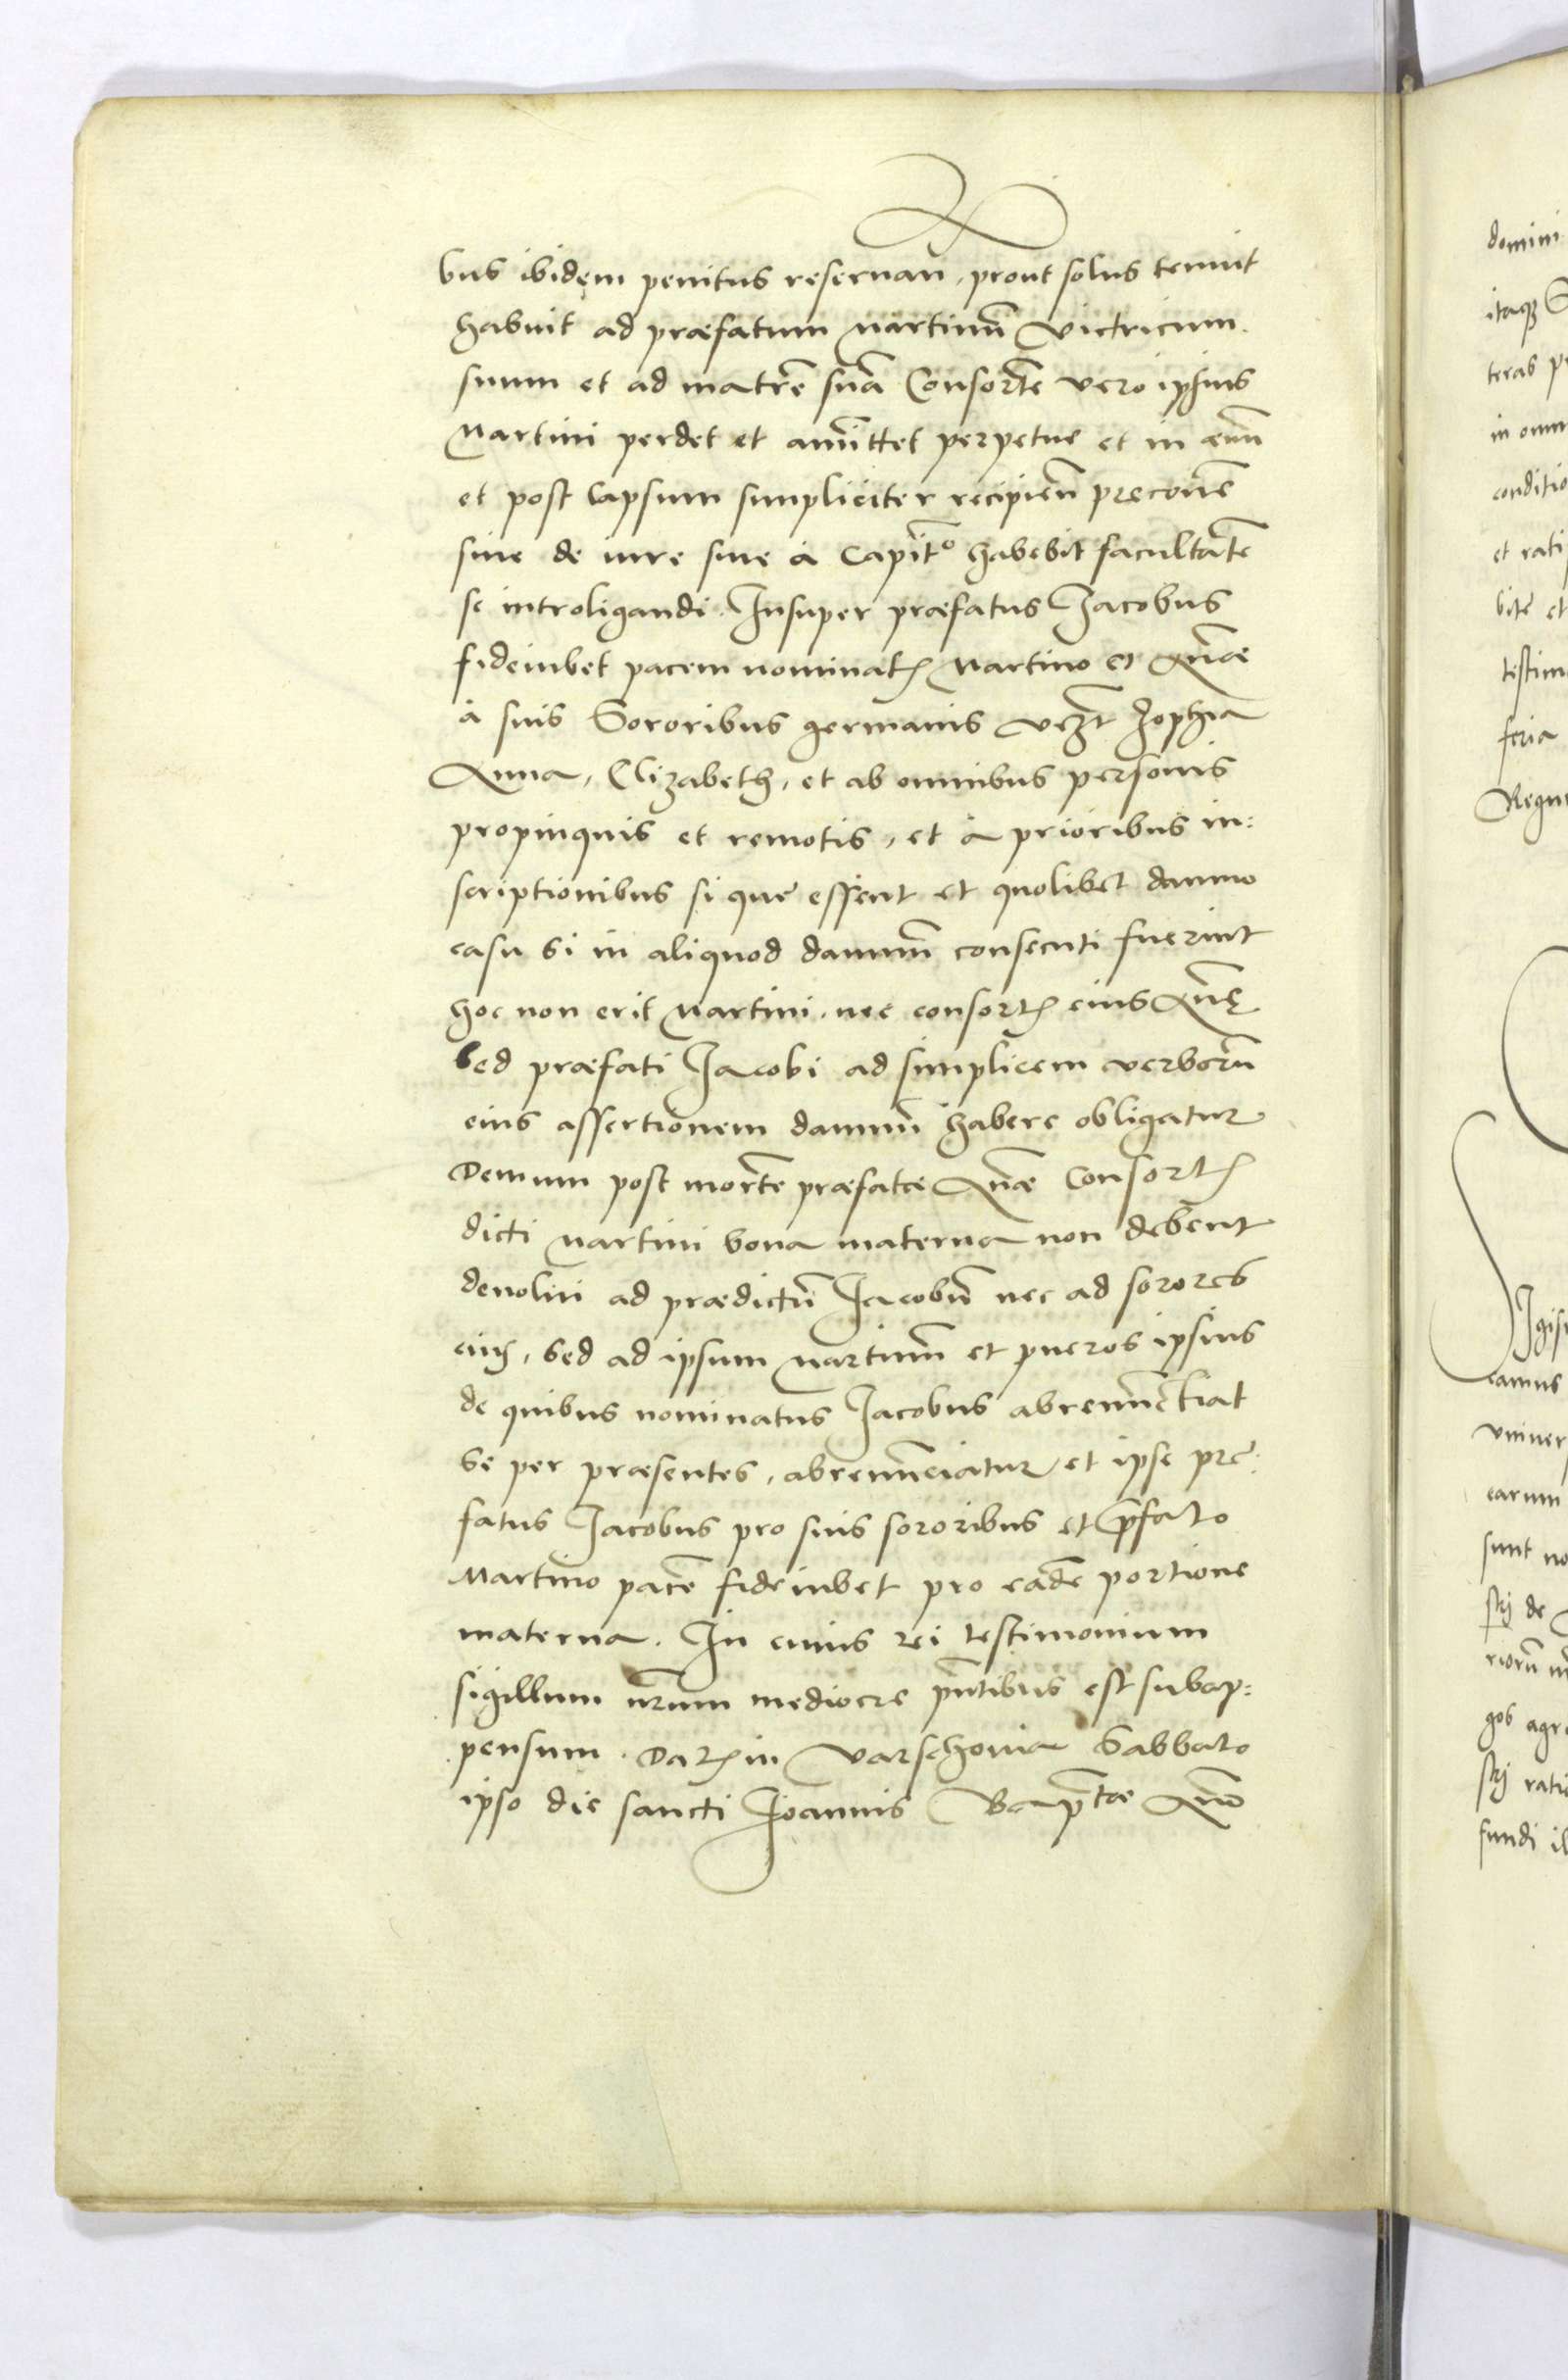 bus ibidem penitus reseruan̄, prout solus tenuit
habuit ad præfatum Martinū Victricum
suum et ad matrē suā Consortē vero ipsius
Martini perdet et amittet perpetue et in æuū
et post lapsum simpliciter recipien̄ preconē
siue de iure siue a Capitº habebit facultatē
se introligandi. Insuper præfatus Jacobus
fideiubet pacem nominatꝭ Martino et Annæ
à suis Sororibus germanis vꝫt Zophia
Anna, Elizabeth, et ab omnibus personis
propinquis et remotis, et à prioribus in:
scriptionibus si que essent et quolibet damno
casu si in aliquod damnū consecuti fuerint
hoc non erit Martini, nec consortꝭ eius Annę
sed præfati Jacobi ad simplicem verborū
eius assertionem damnū habere obligatur
Demum post mortē præfatæ Annæ Consortꝭ
dicti Martini bona materna non debent
deuolui ad prædictū Jacobū nec ad sorores
eius, sed ad ipsum Martinū et pueros ipsius
de quibus nominatus Jacobus abrenūctiat
se per præsentes, abrenūciatur et ipse pre:
fatus Jacobus pro suis sororibus et p̄fato
Martino pacē fideiubet pro eadē portione
materna. In cuius rei testimonium
sigillum nr̄um mediocre pn̄tibus est subap:
pensum. Datꝭ in Varschouia Sabbato
ipso die sancti Joannis Bap̄tæ Anno
domini
itaqꝫ
teras
in omn
conditio
et rati
bite et
testim
feria
Regn
Sigis
camus
vniuer
earum
sunt no
stꝭ de
riorū
gos agr
stꝭ rati
fundi il